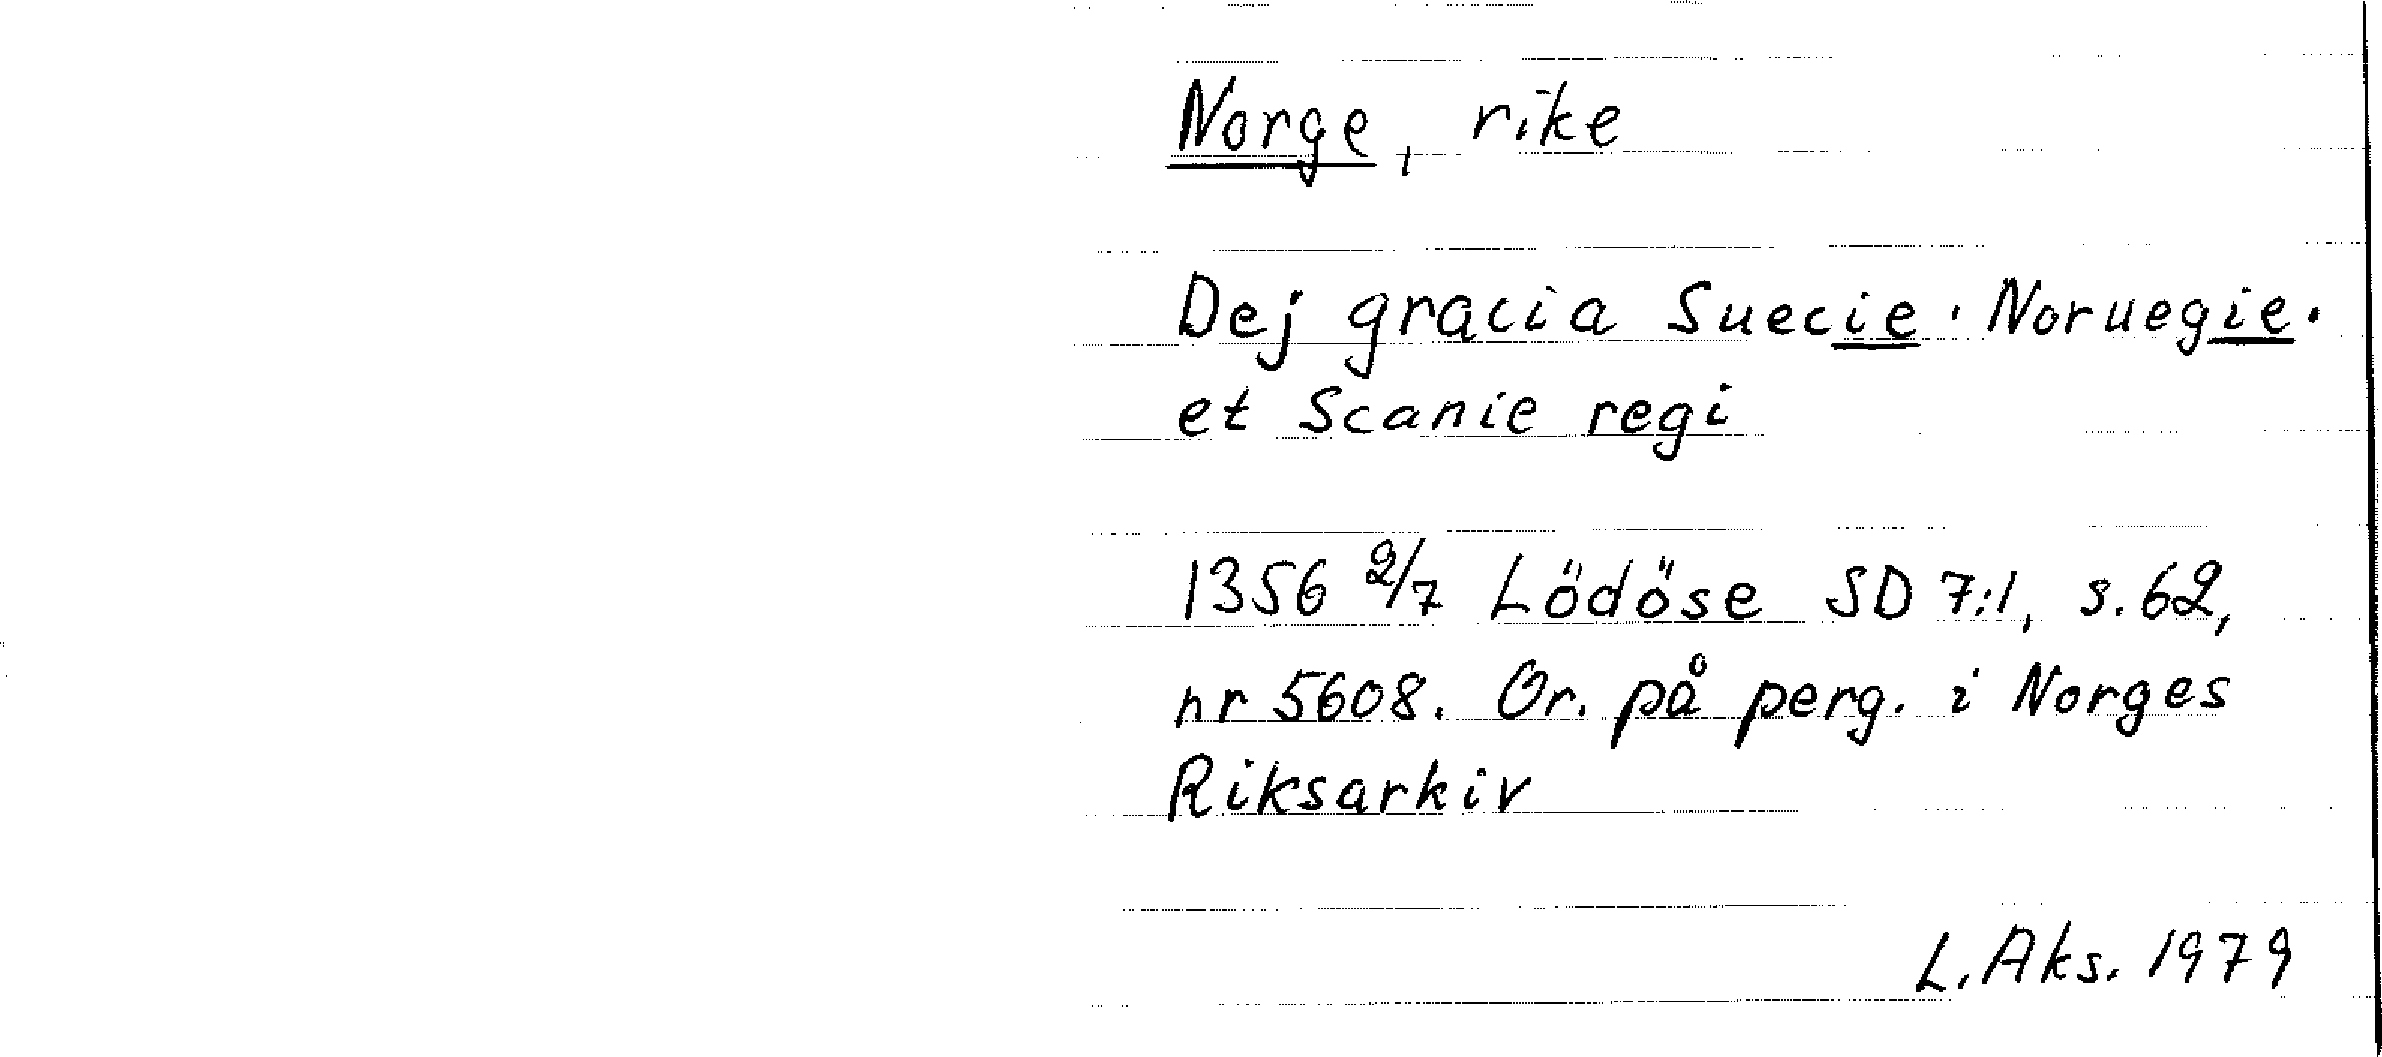 Norge, rike
Dej gracia Suecie · Noruegie ·
et Scanie regi
1356 2/7 Lödöse SD 7:1, s. 62,
nr 5608. Or. på perg. i Norges
Riksarkiv
L. Aks. 1979